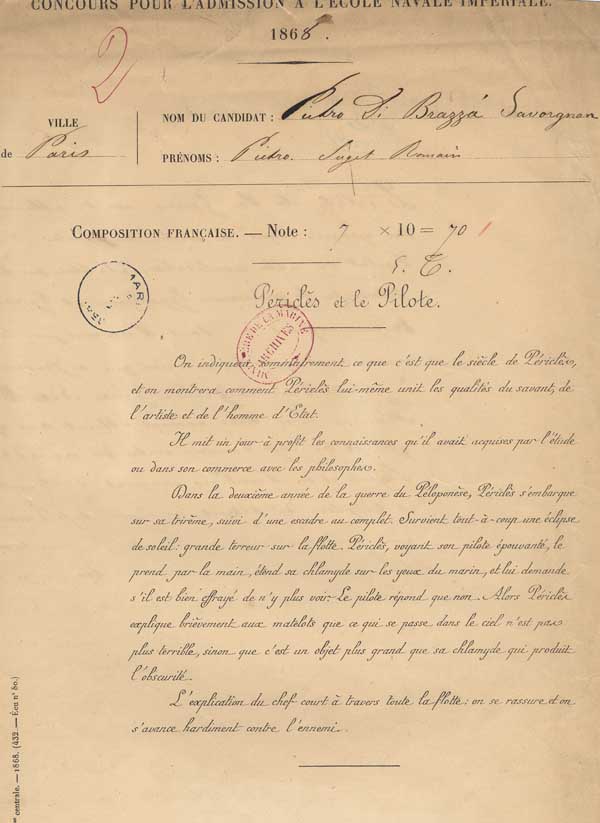 CONCOURS POUR L'ADMISSION A L'ÉCOLE NAVALE IMPÉRIALE.
1868.
2
VILLE
de Paris
NOM DU CANDIDAT : Pietro Di Brazzá Savorgnan
PRÉNOMS : Pietro. Romain
COMPOSITION FRANÇAISE. — Note : 7 × 10 = 70
Périclès et le Pilote.
ARCHIVES
On indiquera sommairement ce que c'est que le siècle de Périclès,
et on montrera comment Périclès lui-même unit les qualités du savant, de
l'artiste et de l'homme d'État.
Il mit un jour à profit les connaissances qu'il avait acquises par l'étude
ou dans son commerce avec les philosophes.
Dans la deuxième année de la guerre du Péloponèse, Périclès s'embarque
sur sa trirème, suivi d'une escadre au complet. Survient tout-à-coup une éclipse
de soleil : grande terreur sur la flotte. Périclès, voyant son pilote épouvanté, le
prend par la main, étend sa chlamyde sur les yeux du marin, et lui demande
s'il est bien effrayé de n'y plus voir. Le pilote répond que non. Alors Périclès
explique brièvement aux matelots que ce qui se passe dans le ciel n'est pas
plus terrible, sinon que c'est un objet plus grand que sa chlamyde qui produit
l'obscurité.
L'explication du chef court à travers toute la flotte : on se rassure et on
s'avance hardiment contre l'ennemi.
centrale. — 1868. (432. — Écu n° 80.)